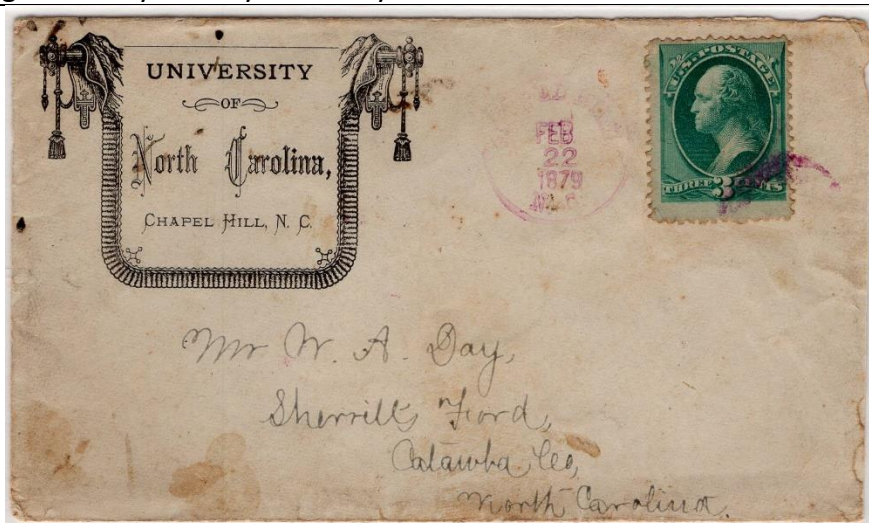 UNIVERSITY
OF
North Carolina,
CHAPEL HILL, N. C.
FEB
22
1879
U.S. POSTAGE.
THREE 3 CENTS
Mr W. A. Day,
Sherrills Ford,
Catawba Co,
North Carolina.